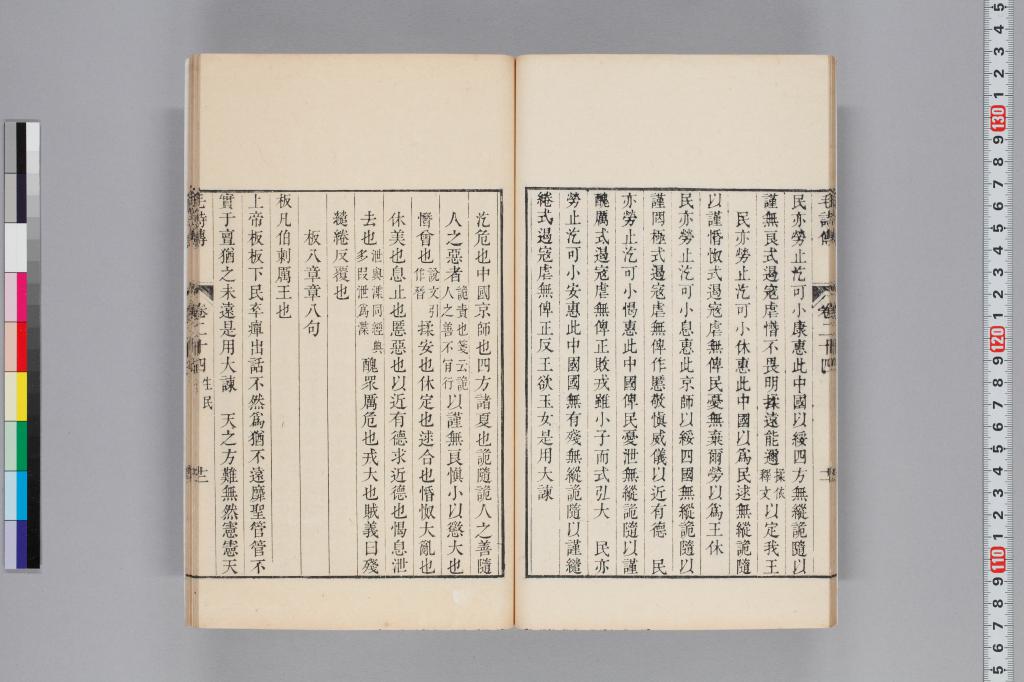 民亦勞止汔可小康惠此中國以綏四方無縱詭隨以
謹無良式遏寇虐憯不畏明揉遠能邇揉依釋文以定我王
民亦勞止汔可小休惠此中國以爲民逑無縱詭隨
以謹惛怓式遏寇虐無俾民憂無棄爾勞以爲王休
民亦勞止汔可小息惠此京師以綏四國無縱詭隨以
謹罔極式遏寇虐無俾作慝敬愼威儀以近有德 民
亦勞止汔可小愒惠此中國俾民憂泄無縱詭隨以謹
醜厲式遏寇虐無俾正敗戎雖小子而式弘大 民亦
勞止汔可小安惠此中國國無有殘無縱詭隨以謹繾
綣式遏寇虐無俾正反王欲玉女是用大諫
汔危也中國京師也四方諸夏也詭隨詭人之善隨
人之惡者詭責也箋云詭人之善不肯行以謹無良愼小以懲大也
憯曾也說文引作朁揉安也休定也逑合也惛怓大亂也
休美也息止也慝惡也以近有德求近德也愒息泄
去也泄與渫同經典多叚泄爲渫醜眾厲危也戎大也賊義曰殘
繾綣反覆也
板八章章八句
板凡伯刺厲王也
上帝板板下民卒癉出話不然爲猶不遠靡聖管管不
實于亶猶之未遠是用大諫 天之方難無然憲憲天
毛詩傳 卷二十四 生民